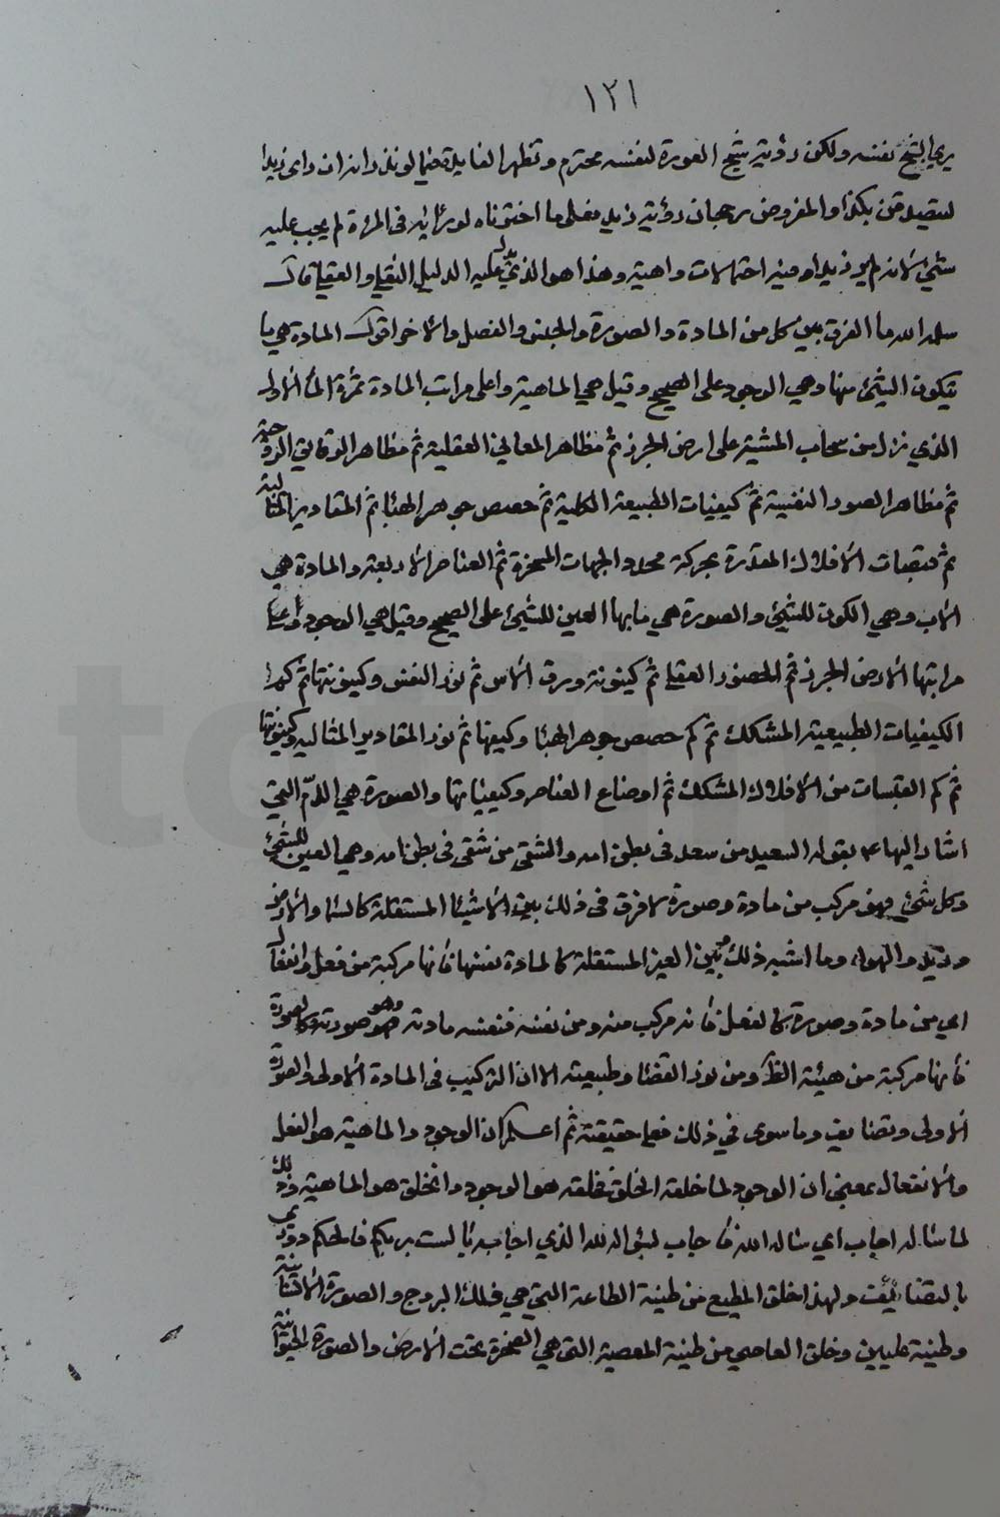 ١٢١
يرى الشبح نفسه ولكن رؤيته شبح العورة لنفسه محترم وتظهر الفايدة فيما لو نذر انه ان راى زيدا
ليتصدقن بكذا والمفروض رجحان رؤية زيد فعلى ما اخترناه لو رآه في المرآة لم يجب عليه
شئ لانه لم ير زيدا وفيه احتمالات واهية وهذا هو الذي يدل عليه الدليل النقلي والعقلي قال
سلمه الله ما الفرق بين كل من المادة والصورة والجنس والفصل والاخر اقول المادة هي ما
يتكون الشئ منها وهي الوجود على الصحيح وقيل هي الماهية واعلى مراتب المادة ثمرة الماء الاولى
الذي نزل من سحاب المشية على ارض الجرز ثم مظاهر المعاني العقلية ثم مظاهر الرقائق الروحية
ثم مظاهر الصور النفسية ثم كيفيات الطبيعة الكلية ثم حصص جوهر الهباء ثم المقادير المثالية
ثم قبضات الافلاك المقدرة بحركة محدد الجهات المسخرة ثم العناصر الاربعة والمادة هي
الاب وهي الكون للشئ والصورة هي ما بها العين للشئ على الصحيح وقيل هي الوجود واعلى
مراتبها الارض الجرز ثم الحضور العقلي ثم كينونة ورق الاس ثم نور النفس وكينونتها ثم كم
الكيفيات الطبيعية المشكك ثم كم حصص جوهر الهباء وكيفها ثم نور المقادير المثالية وكينونتها
ثم كم القبسات من الافلاك المشكك ثم اوضاع العناصر وكيفياتها والصورة هي الام التي
اشار اليها ع بقوله السعيد من سعد في بطن امه والشقي من شقي في بطن امه وهي العين للشئ
وكل شئ فهو مركب من مادة وصورة لا فرق في ذلك بين الاشياء المستقلة كالسماء والارض
وزيد والهواء وما اشبه ذلك وبين الغير المستقلة كالمادة نفسها فانها مركبة من فعل وانفعال
اي من مادة وصورة كالفعل فانه مركب منه ومن نفسه فنفسه مادته وهو صورته وكالصورة
فانها مركبة من هيئة القدر ومن نور القضاء وطبيعته الا ان التركيب في المادة الاولى والصورة
الاولى وتضايف وما سوى في ذلك فعلى حقيقته ثم اعلم ان الوجود والماهية هو الفعل
والانفعال بمعنى ان الوجود لما خلقه انخلق فخلقه هو الوجود وانخلق هو الماهية وذلك
لما ساله اجاب اي ساله الله فاجاب لسؤال الله الذي اجاب به بالست بربكم فالحكم دوري
بالتضايف ولهذا خلق المطيع من طينة الطاعة التي هي فلك البروج والصورة الانسانية
وطينة عليين وخلق العاصي من طينة المعصية التي هي الصخرة تحت الارض والصورة الحيوانية